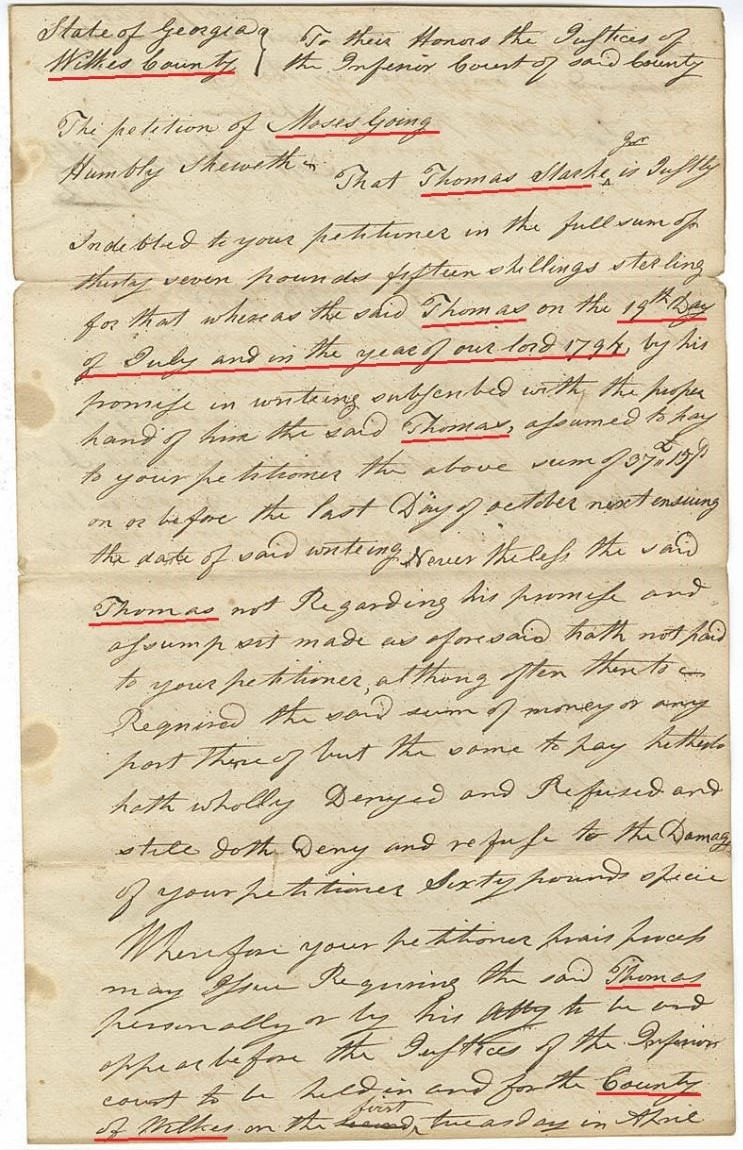 State of Georgia }
Wilkes County } To their Honors the Justices of
the Inferior Court of said County
The petition of Moses Going
Humbly sheweth
That Thomas Starke jnr is Justly
Indebted to your petitioner in the full sum of
thirty seven pounds fifteen shillings sterling
for that whereas the said Thomas on the 19th Day
of July and in the year of our lord 1794, by his
promise in writeing subscribed with the proper
hand of him the said Thomas, assumed to pay
to your petitioner the above sum of 37£
on or before the last Day of october next ensuing
the date of said writeing Never theless the said
Thomas not Regarding his promise and
assumpsit made as aforesaid hath not paid
to your petitioner, althoug often thereto
Required the said sum of money or any
part there of but the same to pay hetherto
hath wholly Denyed and Refused and
still doth Deny and refuse to the Damage
of your petitioner Sixty pounds specie
Wherefore your petitioner prais process
may Issue Requiring the said Thomas
personally or by his Atty to be and
appear before the Justices of the Inferior
court to be held in and for the County
of Wilkes on the first tuesday in April